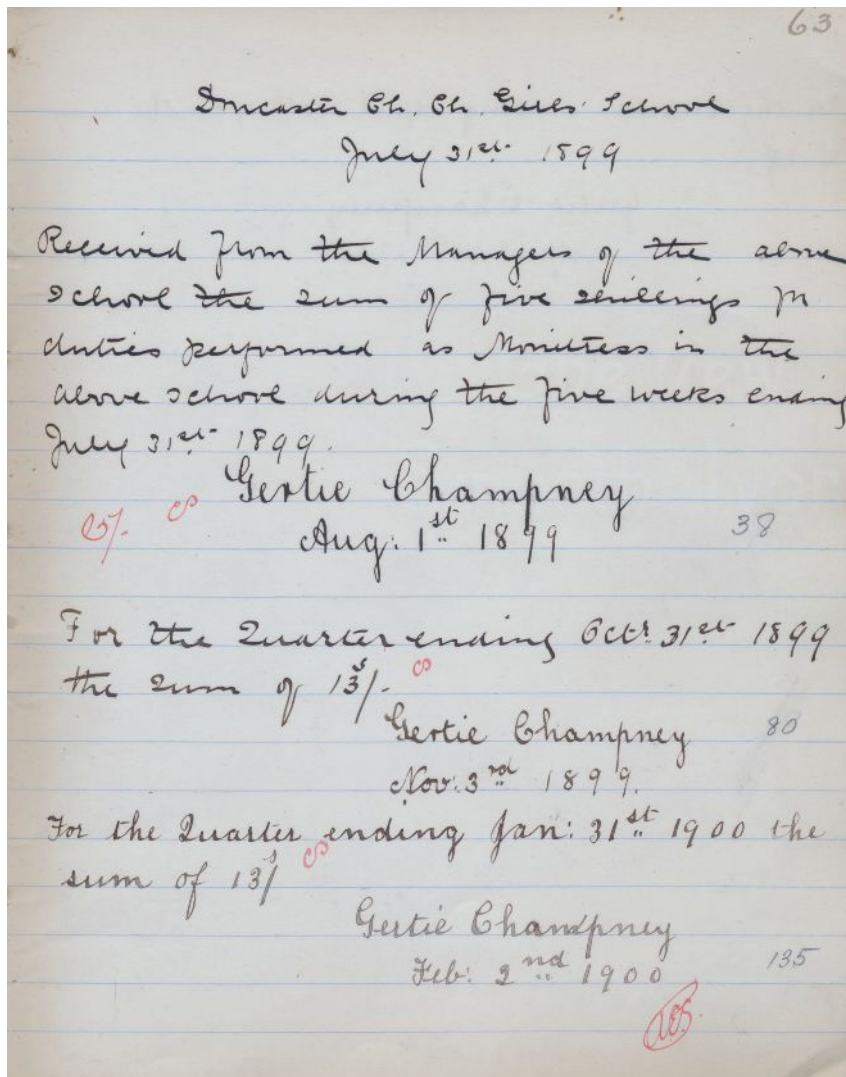 63
Doncaster Ch. Ch. Girls' School
July 31st 1899
Received from the Managers of the above
School the sum of five shillings for
duties performed as Monitress in the
above school during the five weeks ending
July 31st 1899.
Gertie Champney
5/-
Aug: 1st 1899
38
For the Quarter ending Octr. 31st 1899
the sum of 13s/-
Gertie Champney
80
Nov: 3rd 1899.
For the Quarter ending Jan: 31st 1900 the
sum of 13s/
Gertie Champney
Feb: 2nd 1900
135